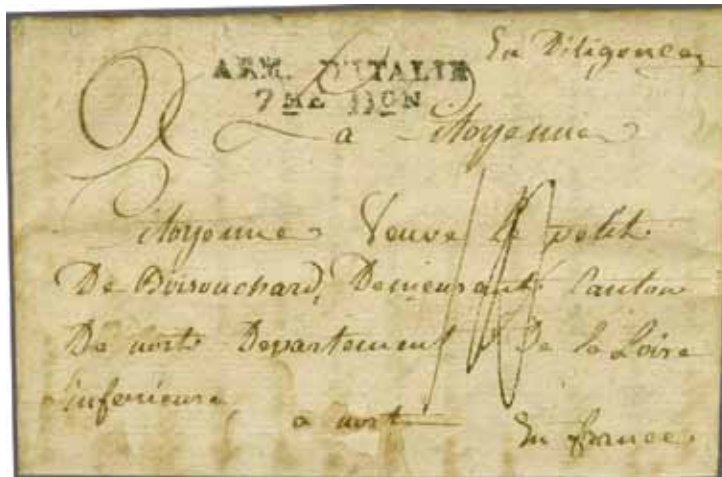 En Diligence
ARM. D'ITALIE
7ME DON
a Citoyenne
Citoyenne Veuve le petit
De Boisouchard, Demeurante Canton
De norte Departement De la Loire
inferieure
a nort
En france